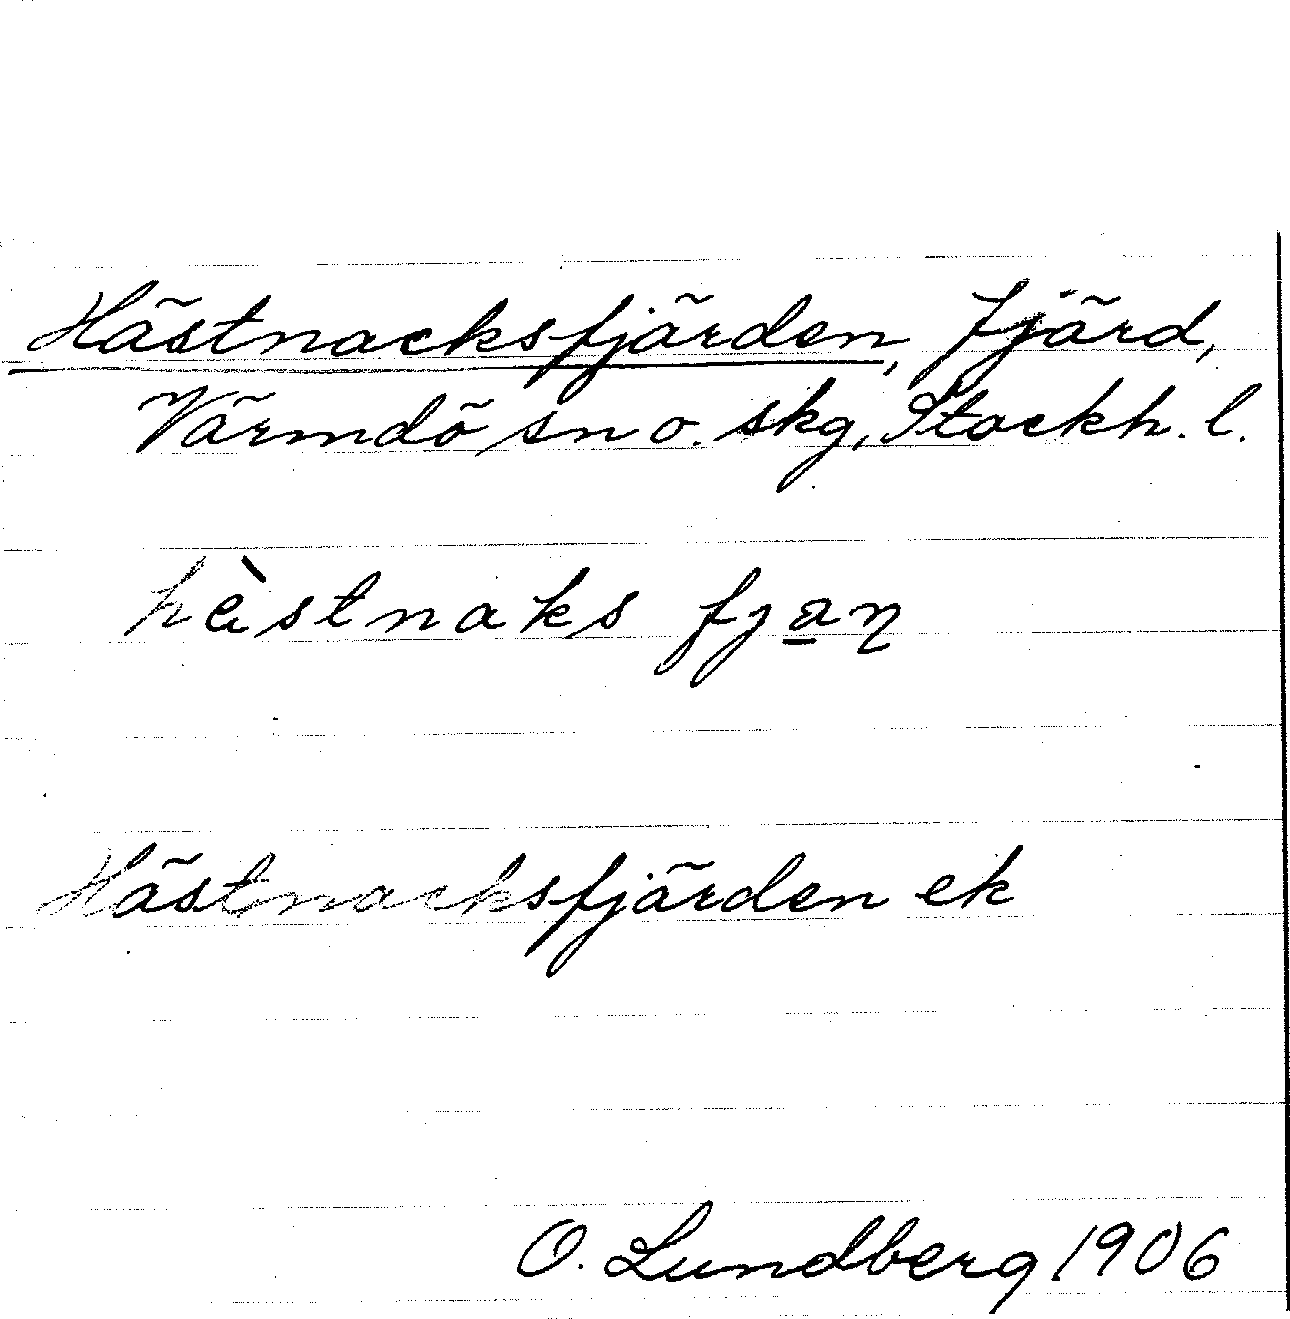 Hästnacksfjärden, fjärd,
Värmdö sn o. skg, Stockh. l.
hὲstnaks fja̱ɳ
Hästnacksfjärden ek
O. Lundberg 1906